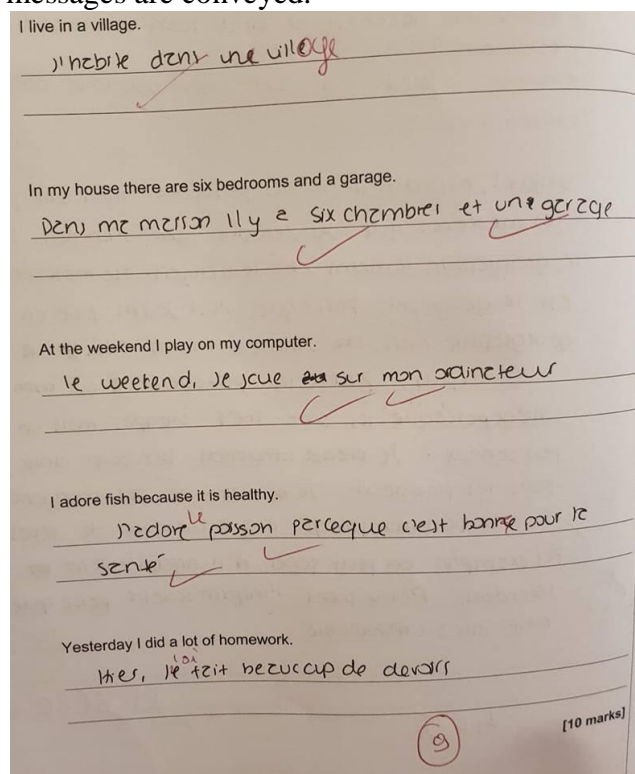 messages are conveyed.
I live in a village.
J'habite dans une village
In my house there are six bedrooms and a garage.
Dans ma maison Il y a six chambres et une garage
At the weekend I play on my computer.
le weekend, Je joue sur mon ordinateur
I adore fish because it is healthy.
J'adore le poisson parceque c'est bonne pour la
santé
Yesterday I did a lot of homework.
ai
Hier, Je fait beaucoup de devoirs
[10 marks]
9